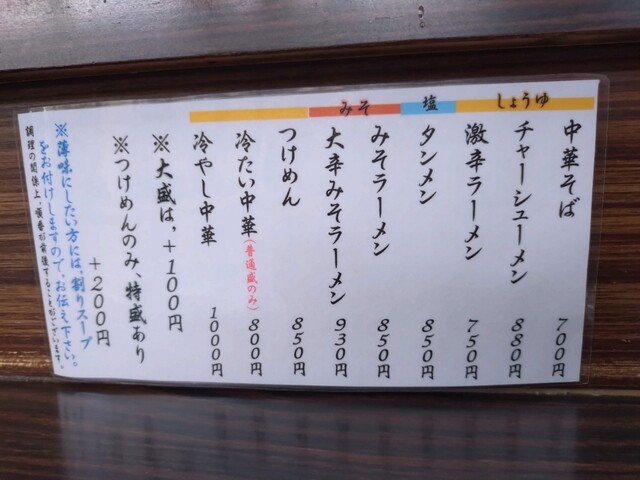 しょうゆ
中華そば 700円
チャーシューメン 880円
激辛ラーメン 750円
塩
タンメン 850円
みそ
みそラーメン 850円
大辛みそラーメン 930円
つけめん 850円
冷たい中華(普通盛のみ) 800円
冷やし中華 1000円
※大盛は、+100円
※つけめんのみ、特盛あり
+200円
※薄味にしたい方には、割りスープ
をお付けしますので、お伝え下さい。
調理の関係上、順番が前後することがございます。